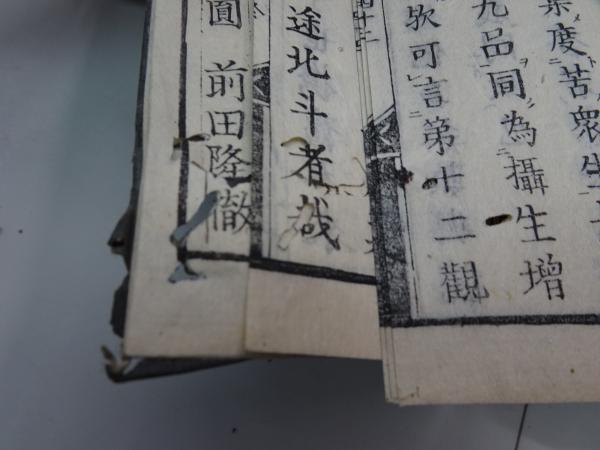 度苦衆生
九品同為攝生增
可言第十二觀
途北斗者哉
圓 前田隆徹